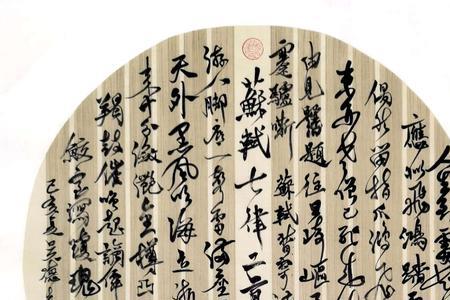 人生到處
應似飛鴻踏
偶然留指爪鴻飛
東西老僧已死
由見舊題往日崎嶇
蹇驢嘶 蘇軾
蘇軾七律二首
游人腳底一聲雷滿座
天外黑風吹海立浙
來十分瀲灩金樽凸
羯鼓催喚起謫仙
鮫室瀉瓊瑰
己亥夏吳德